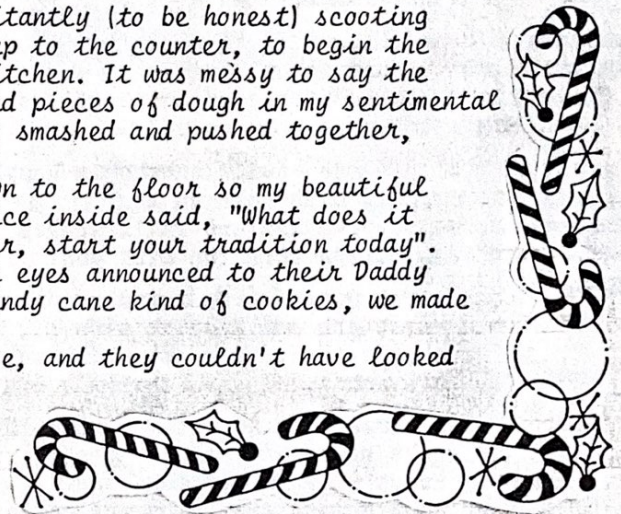 tantly (to be honest) scooting
up to the counter, to begin the
itchen. It was messy to say the
d pieces of dough in my sentimental
smashed and pushed together,
on to the floor so my beautiful
ce inside said, "What does it
r, start your tradition today".
eyes announced to their Daddy
ndy cane kind of cookies, we made
e, and they couldn't have looked